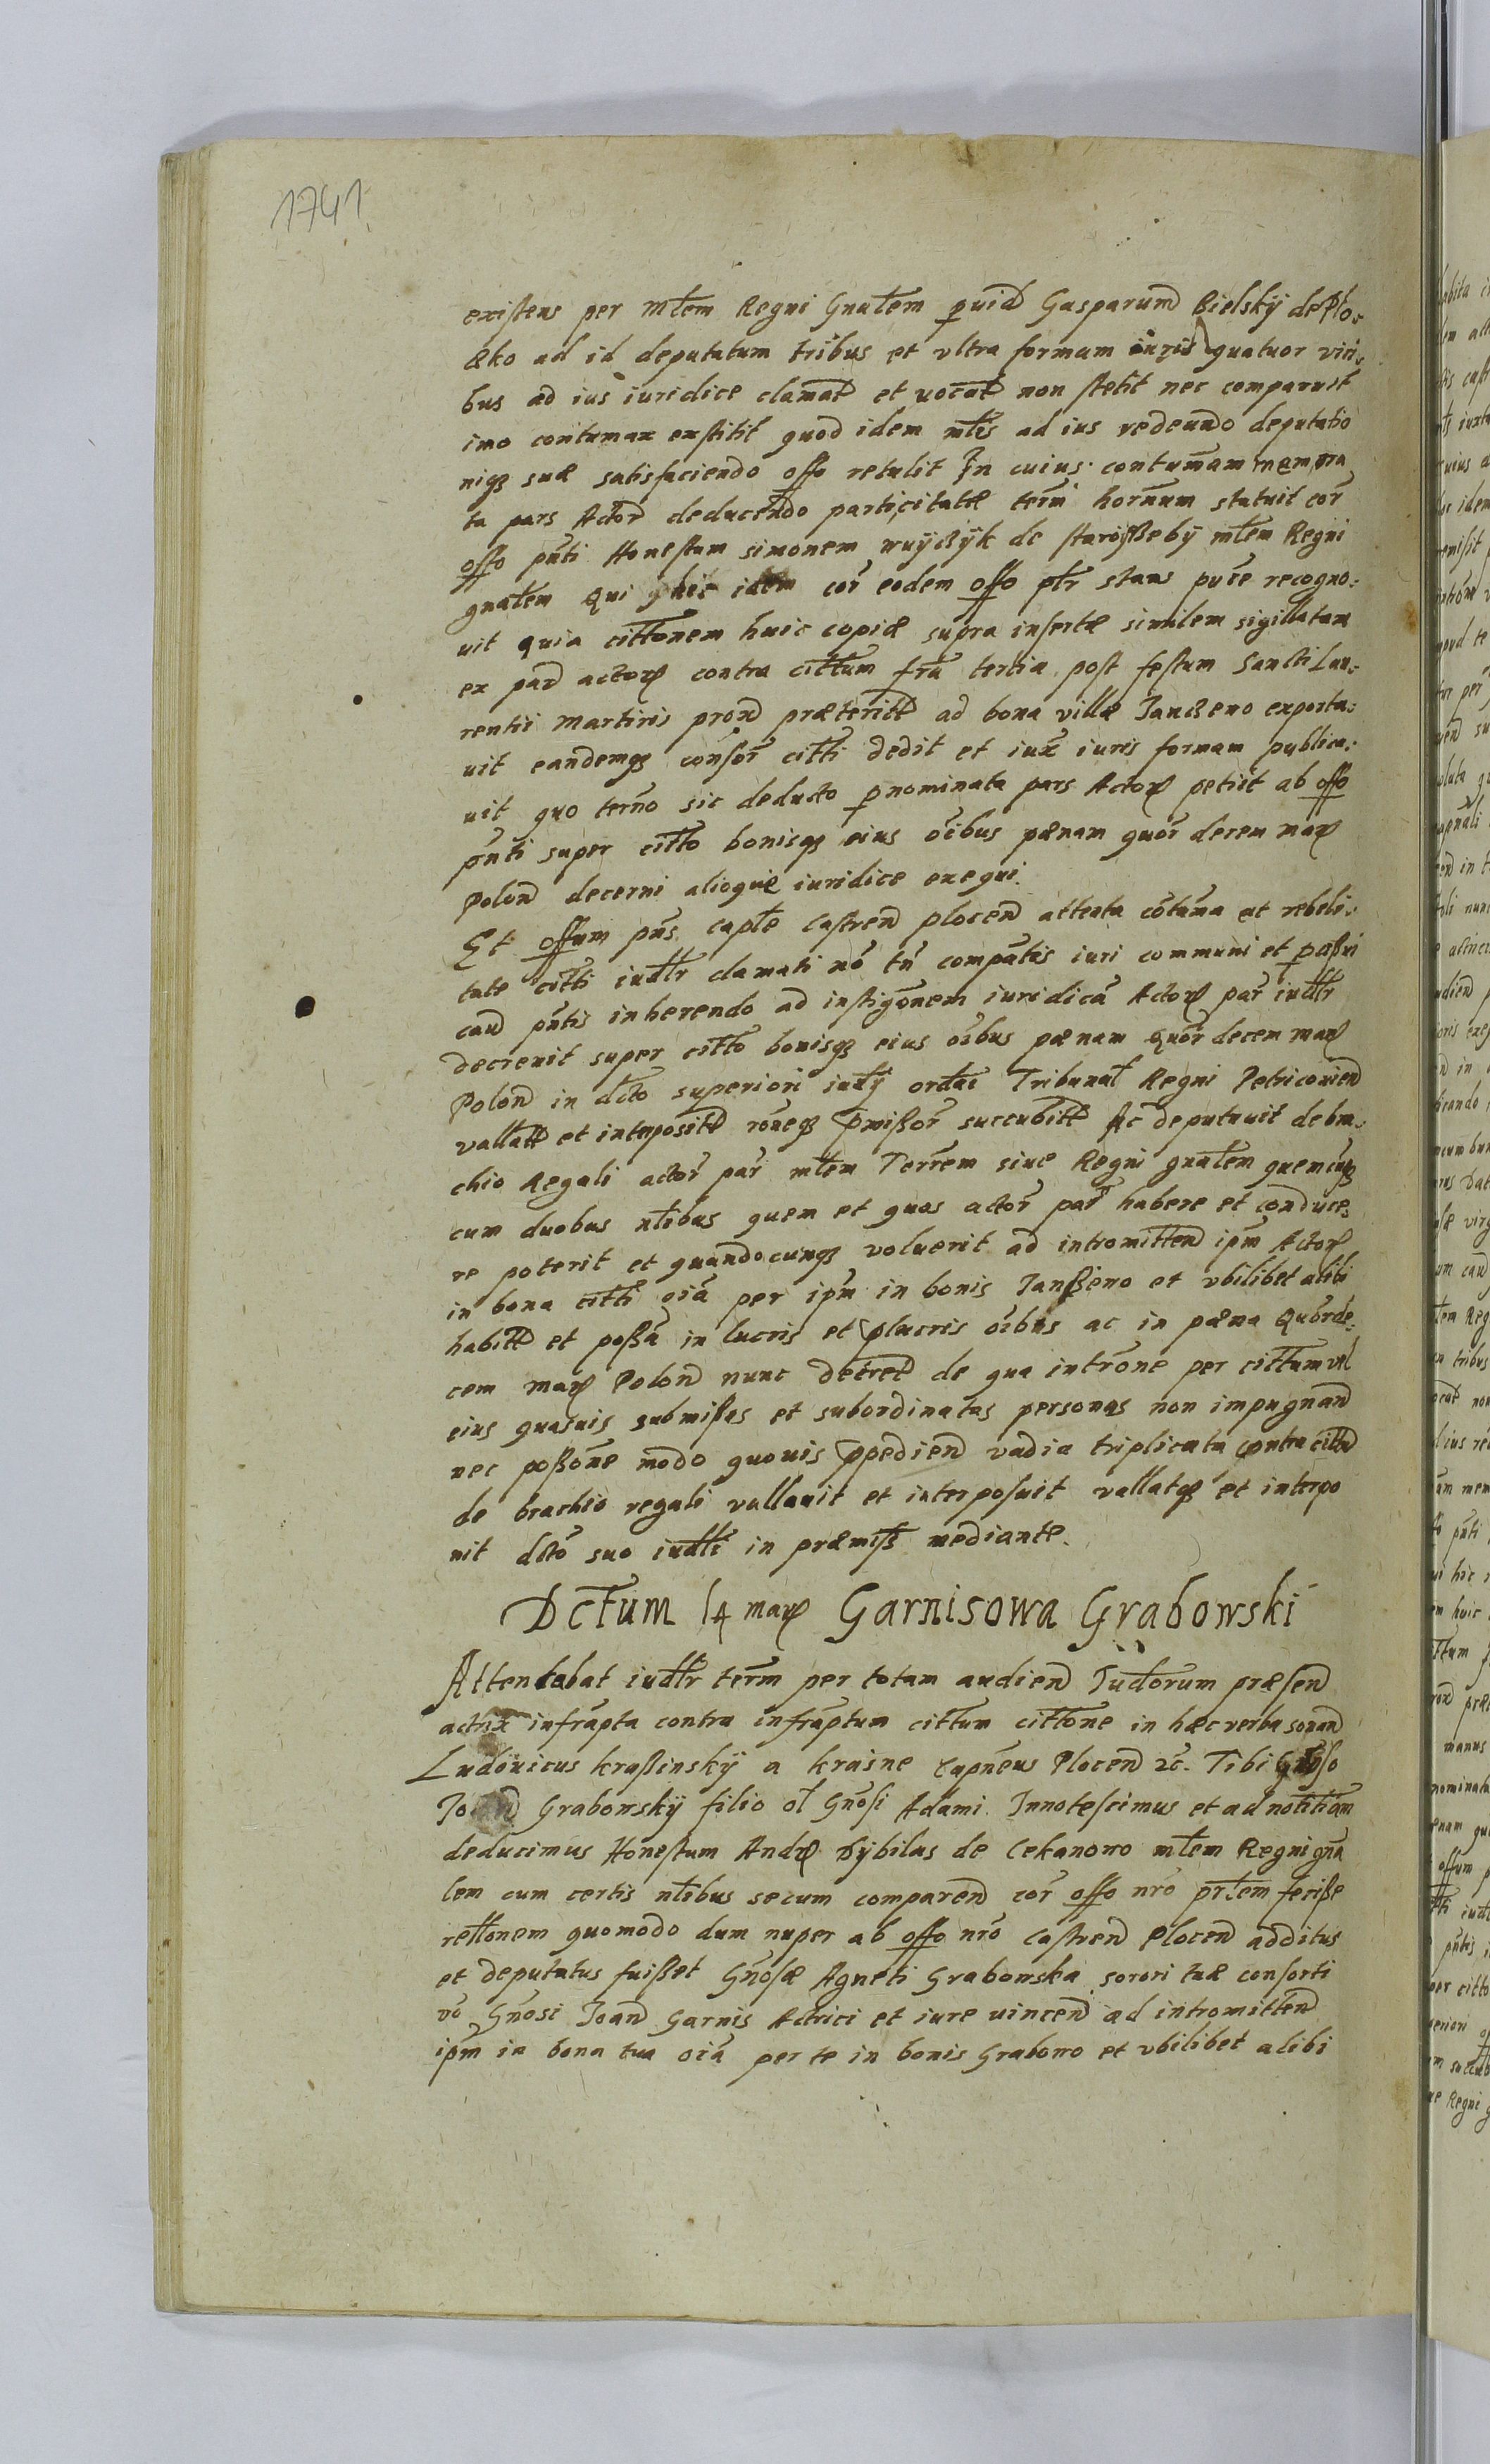 1741
existens per mltem Regni Gnalem puid Gasparum Bielskÿ de Plo:
czko ad id deputatum tribus et vltra formam iuris quatuor vici:
bus ad ius iuridice clamat et uocat non stetit nec comparuit
imo contumax exstitit quod idem mltis ad ius redeundo deputatio
niqз suæ satisfaciendo offo retulit In cuius contumam memora
ta pars Actor deducendo particitatæ term hornum statuit cor
offo pnti Honestum simonem de mltem Regni
gnalem Qui hic idem cor eodem offo pltr stans pure recogno:
uit quia cittonem huic copiæ supra insertæ similem sigillatam
ex par actor contra cittum fra tertia post festum Sancti Lau:
rentii Martiris prox præterit ad bona villæ Janczeno exporta:
uit eandemqз consor citti dedit et iux iuris formam publica:
uit quo termo sic deducto pnominata pars Actor petiit ab offo
pnti super citto bonisqз eius oibus pænam quor decem mar
Polon decerni alioquæ iuridice exequi.
Et offum pns caple Castren plocen attenta cotuma et rebeli:
tate citti iudltr clamati no tn compatis iuri communi et passui
caus pntis inherendo ad instigonem iuridica Actor par iudltr
decreuit super citto bonisqз eius oibus pænam Quor decem mar
Polon in dcto superiori iudij ordac Tribunal Regni Petricouien
vallatt et intrposit roneqз pmissor succubitt Ac deputauit de bra:
chio Regali actor par mltem Terrem siue Regni gnalem quemcuqз
cum duobus nlibus quem et quos actor par habere et conduce:
re poterit et quandocunqз voluerit ad intromitten ipm Actor
in bona citti oia per ipm in bonis Janszeno et vbilibet alibi
habitt et possa in lucris et plucris oibus ac in pæna Quorde:
cem mar Polon nunc decret de qua introne per cittum vel
eius quasuis submissas et subordinatas personas non impugnan
nec possone modo quouis ppedien vadia triplicata contra citto
de brachio regali vallauit et interposuit vallatqз et interpo
nit dcto suo iudlti in præmiss mediante.
Dctum 14 mar Garnisowa Grabowski
Attentabat iudltr term per totam audien Iudtorum præsen
actrix infrapta contra infraptum cittum cittone in hæc verba sonan
Ludouicus krassinskÿ a krasne Capneus Plocen &c. Tibi Gnoso
Joan Grabowskÿ filio ol Gnosi Adami. Innotescimus et ad notitiam
deducimus Honestum Andr Dÿbilas de Cekanowo mltem Regni gna
lem cum certis nlibus secum comparen cor offo nro prltem fecisse
reltonem quomodo dum nuper ab offo nro Castren Plocen additus
et deputatus fuisset Gnosæ Agneti Grabowska sorori tuæ consorti
vo Gnosi Joan Garnis Actrici et iure uincen ad intromitten
ipm in bona tua oia per te in bonis Grabowo et vbilibet alibi